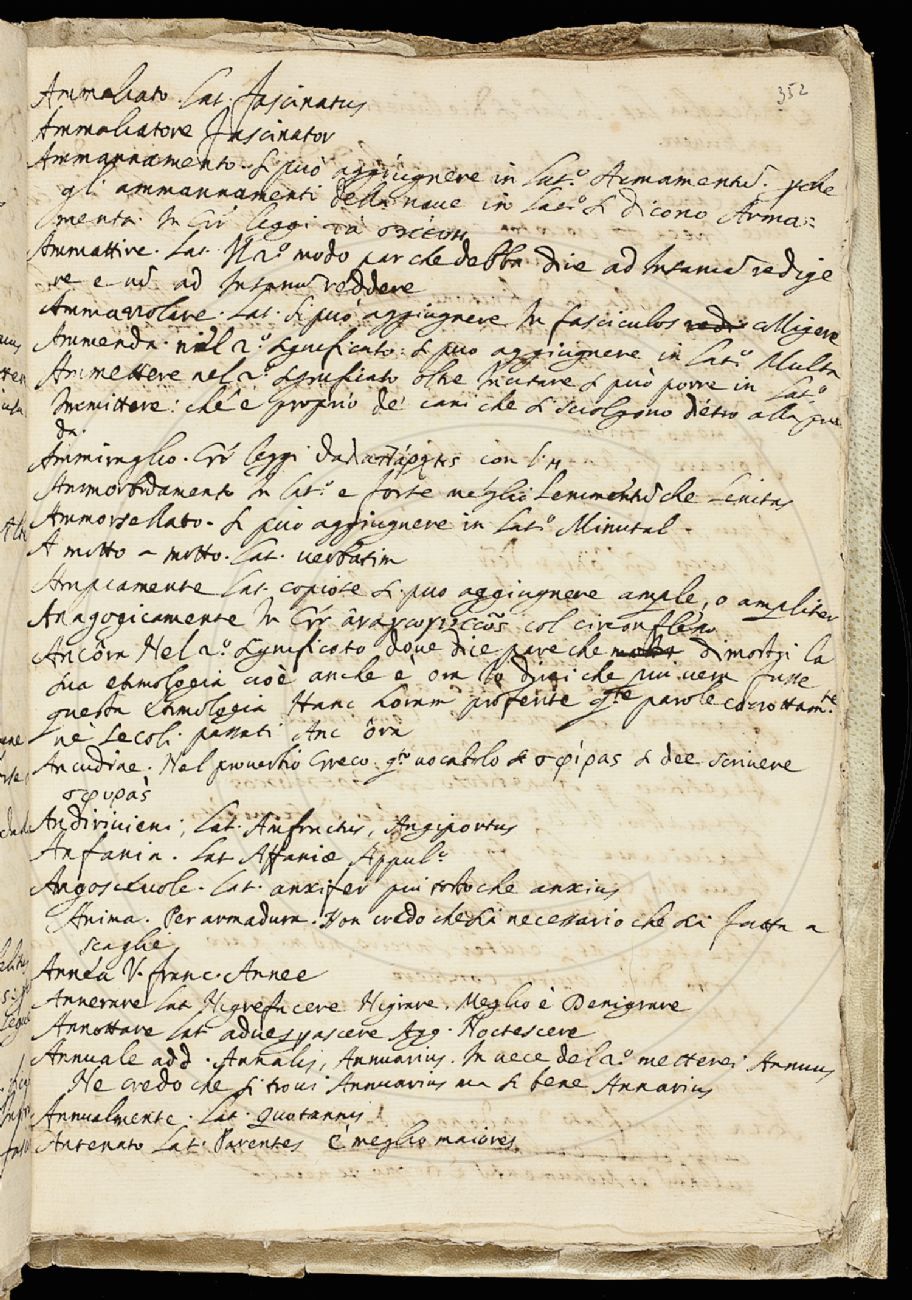 352
Ammaliato. Lat. Fascinatus
Ammaliatore Fascinator
Ammannamento. Si può aggiugnere in Lat.o Armamentū. pche
gli ammannamenti della naue in Lat.o si dicono Arma=
menta. In Gr. leggi τὰ
Ammattire. Lat. Nel 2.o modo par che debba dire ad Insaniā redige
re e nō ad Insanū reddere
Ammazzolare. Lat. Si può aggiugnere In fasciculos colligere
Ammenda. nel 2.o significato: si può aggiugnere in Lat.o Multa
Ammettere nel 2.o significato oltre Incitare si può porre in Lat.o
Immittere: che è proprio de' cani che si sciolgono dietro alla pre
da.
Ammiraglio. Gr. leggi con l'η
Ammorbidamento In Lat.o e forse meglio Lenimentū che Lenitas
Ammorsellato. Si può aggiugnere in Lat.o Minutal.
A motto a motto. Lat. verbatim
Ampiamente Lat. copiose si può aggiugnere ample, o ampliter
Anagogicamente In Gr. ἀναγωγικῶς col circonflesso
Ancôra Nel 2.o significato doue dice pare che dimostri la
sua etimologia cioè anche è ora Io direi che più uera fusse
questa etimologia Hanc horam proferite q.te parole corrottam.te
ne secoli passati Anc ôra
Ancudine. Nel prouerbio Greco. q.o uocabolo σφίρας si dee scriuere
σφυρὰς
Andirivieni, Lat. Anfractus, Angiportus
Anfania. Lat Affaniæ Appul.o
Angosceuole. Lat. anxifer più tosto che anxius
Anima. Per armadura. Non credo che sia necessario che sia fatta a
scaglie
Annéa V. franc. Annee
Annerare Lat Nigrefacere Nigrare. Meglio è Denigrare
Annottare Lat aduesperascere Agg. Noctescere
Annuale add. Annalis, Annuarius. In uece del 2.o metterei Annuus
Ne credo che si troui Annuarius ma si bene Annarius
Annualmente. Lat. quotannis
Antenato Lat. Parentes è meglio maiores